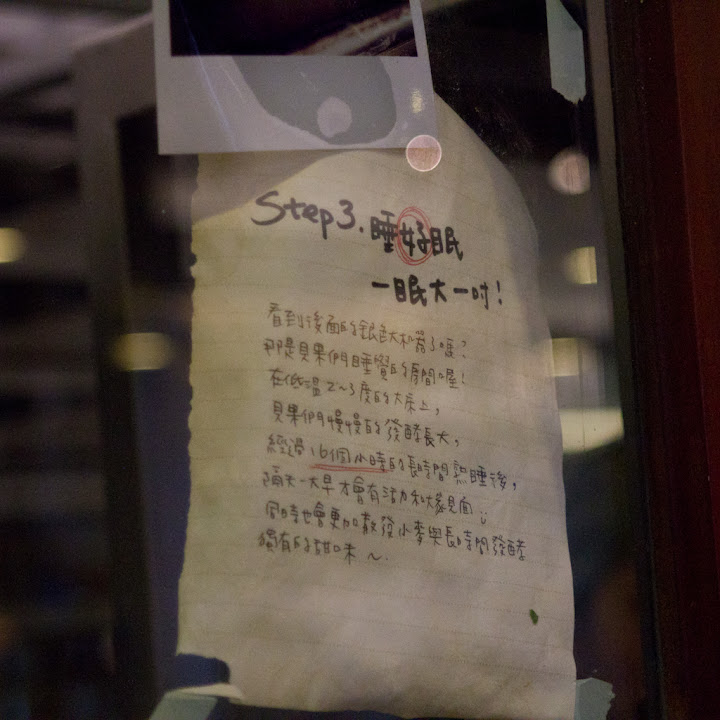 Step 3. 睡好眠
一眠大一吋!
看到後面的銀色大機器了嗎?
那是貝果們睡覺的房間喔!
在低溫2~3度的大床上,
貝果們慢慢的發酵長大,
經過16個小時的長時間熟睡後,
隔天一大早才會有活力和大家見面
同時也會更加散發小麥與長時間發酵
獨有的甜味~